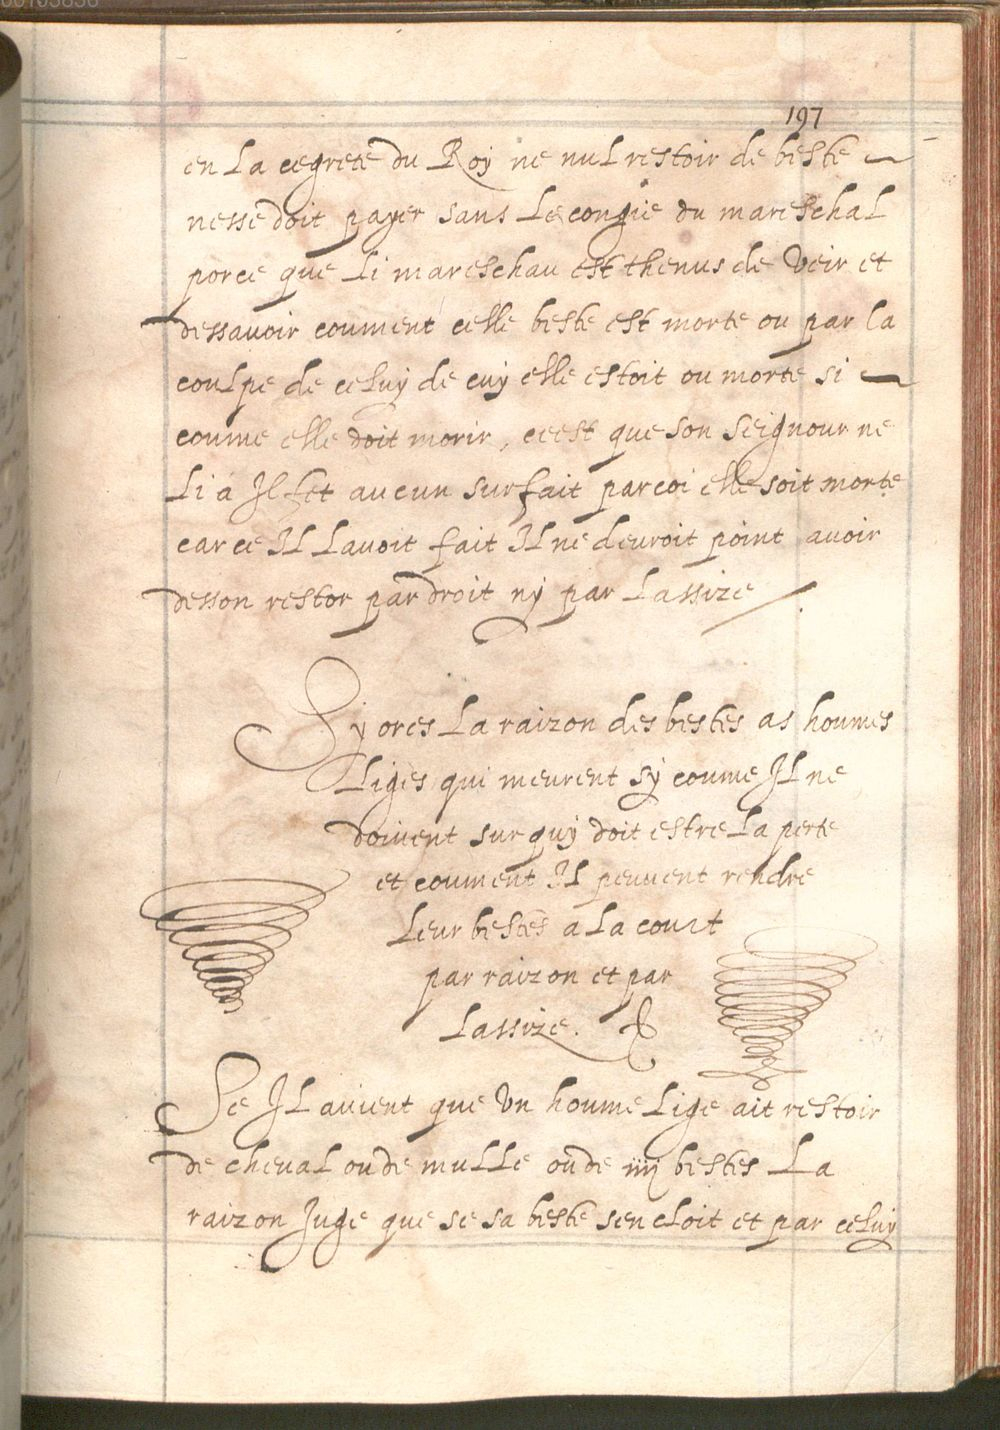 197
en La cegrete du Roy ne nul restoir de beste
nesse doit payer sans Le congie du mareschal
porce que Li mareschau est thenus de Veir et
dessavoir coument celle beste est morte ou par la
coulpe de celuy de cuy elle estoit ou morte si
coume elle doit morir, ceest que son seignour ne
Li á Il fet aucun surfait parcoi elle soit morte
car ce Il Lavoit fait Il ne devroit point avoir
desson restor par droit ny par Lassize
Sy ores La raizon des bestes as houmes
Liges qui meurent sy coume Il ne
doivent sur quy doit estre La perte
et coument Il peuvent rendre
Leur bestes a La court
par raizon et par
Lassize.
Se Il avient que Un houme Lige ait restoir
de cheval ou de mulle ou de iiij bestes La
raizon Juge que se sa beste sen cloit et par celuy